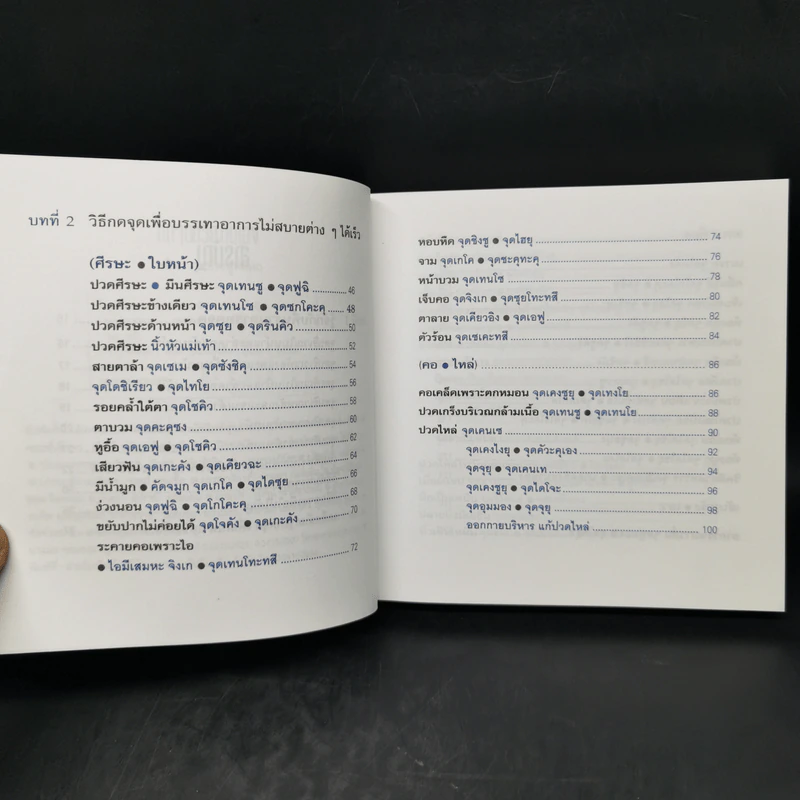 บทที่ 2 วิธีกดจุดเพื่อบรรเทาอาการไม่สบายต่าง ๆ ได้เร็ว
(ศีรษะ ● ใบหน้า)
ปวดศีรษะ ● มึนศีรษะ จุดเทนชู ● จุดฟูฉิ ........ 46
ปวดศีรษะข้างเดียว จุดเทนโซ ● จุดซกโคะคุ ........ 48
ปวดศีรษะด้านหน้า จุดซุย ● จุดรินคิว ........ 50
ปวดศีรษะ นิ้วหัวแม่เท้า ........ 52
สายตาล้า จุดเซเม ● จุดซังชิคุ ........ 54
จุดโดชิเรียว ● จุดไทโย ........ 56
รอยคล้ำใต้ตา จุดโชคิว ........ 58
ตาบวม จุดคะคุซง ........ 60
หูอื้อ จุดเอฟู ● จุดโชคิว ........ 62
เสียวฟัน จุดเกะคัง ● จุดเคียวฉะ ........ 64
มีน้ำมูก ● คัดจมูก จุดเกโค ● จุดไดชุย ........ 66
ง่วงนอน จุดฟูฉิ ● จุดโกโคะคุ ........ 68
ขยับปากไม่ค่อยได้ จุดโจคัง ● จุดเกะคัง ........ 70
ระคายคอเพราะไอ
● ไอมีเสมหะ จิงเก ● จุดเทนโทะทสึ ........ 72
หอบหืด จุดชิงชู ● จุดไฮยุ ........ 74
จาม จุดเกโค ● จุดชะคุทะคุ ........ 76
หน้าบวม จุดเทนโซ ........ 78
เจ็บคอ จุดจิงเก ● จุดซุยโทะทสึ ........ 80
ตาลาย จุดเคียวอิง ● จุดเอฟู ........ 82
ตัวร้อน จุดเซเคะทสึ ........ 84
(คอ ● ไหล่) ........ 86
คอเคล็ดเพราะตกหมอน จุดเคงชูยุ ● จุดเทงโย ........ 86
ปวดเกร็งบริเวณกล้ามเนื้อ จุดเทนชู ● จุดเทนโย ........ 88
ปวดไหล่ จุดเคนเซ ........ 90
จุดเคงไงยุ ● จุดคัวะคุเอง ........ 92
จุดจุยุ ● จุดเคนเท ........ 94
จุดเคงชูยุ ● จุดไดโจะ ........ 96
จุดอุมมอง ● จุดจุยุ ........ 98
ออกกายบริหาร แก้ปวดไหล่ ........ 100